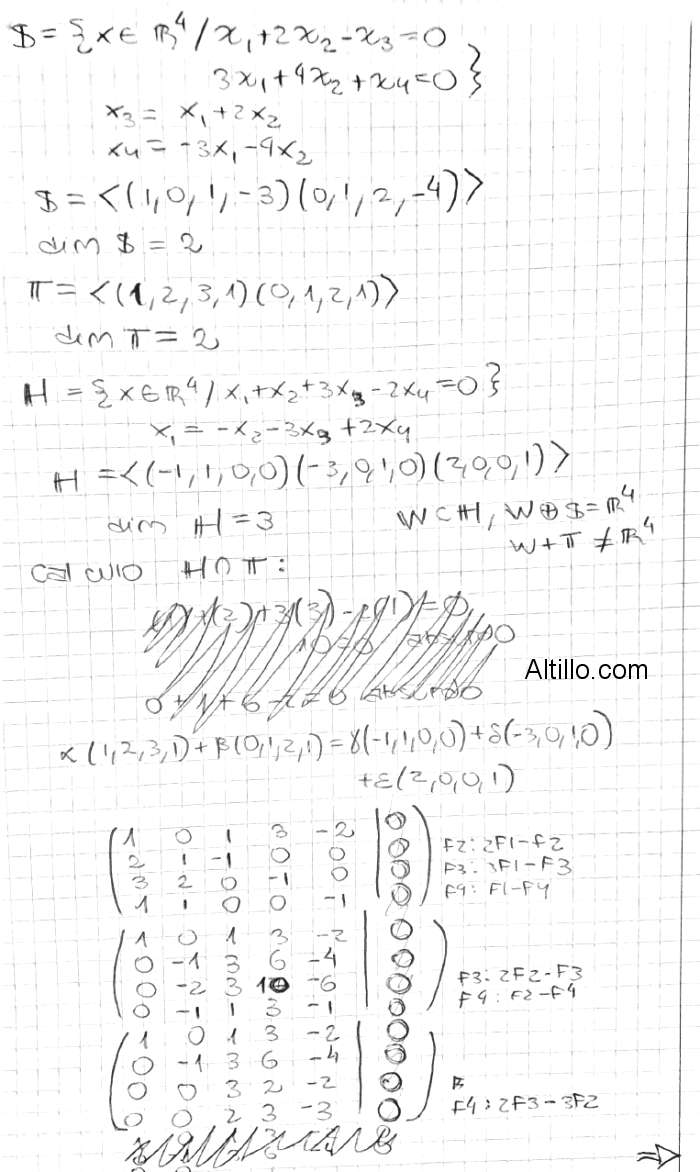 $ = {x ∈ ℝ⁴ / x₁+2x₂-x₃=0
3x₁+4x₂+x₄=0}
x₃ = x₁+2x₂
x₄ = -3x₁-4x₂
$ = <(1,0,1,-3)(0,1,2,-4)>
dim $ = 2
π = <(1,2,3,1)(0,1,2,1)>
dim π = 2
H = {x ∈ ℝ⁴ / x₁+x₂+3x₃-2x₄=0}
x₁ = -x₂-3x₃+2x₄
H = <(-1,1,0,0)(-3,0,1,0)(2,0,0,1)>
dim H = 3
W ⊂ H, W ⊕ $ = ℝ⁴
W + π ≠ ℝ⁴
Calculo H ∩ π:
Altillo.com
α(1,2,3,1)+β(0,1,2,1)=γ(-1,1,0,0)+δ(-3,0,1,0)
+ε(2,0,0,1)
1 0 1 3 -2 | 0
2 1 -1 0 0 | 0 F2: 2F1-F2
3 2 0 -1 0 | 0 F3: 3F1-F3
1 1 0 0 -1 | 0 F4: F1-F4
1 0 1 3 -2 | 0
0 -1 3 6 -4 | 0
0 -2 3 10 -6 | 0 F3: 2F2-F3
0 -1 1 3 -1 | 0 F4: F2-F4
1 0 1 3 -2 | 0
0 -1 3 6 -4 | 0
0 0 3 2 -2 | 0
0 0 2 3 -3 | 0 F4: 2F3-3F2
⇒